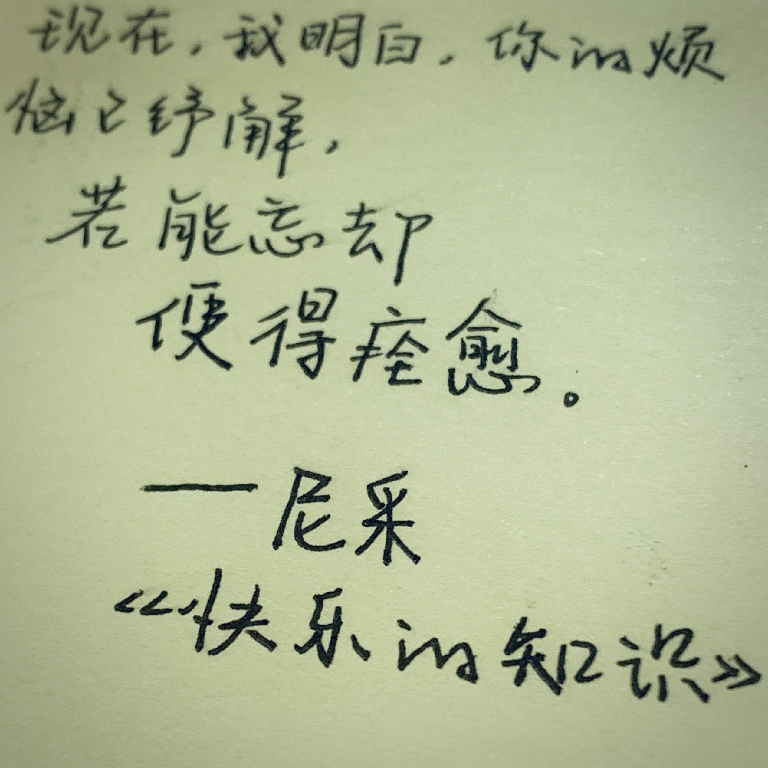 现在，我明白，你的烦
恼已纾解，
若能忘却
便得痊愈。
——尼采
《快乐的知识》